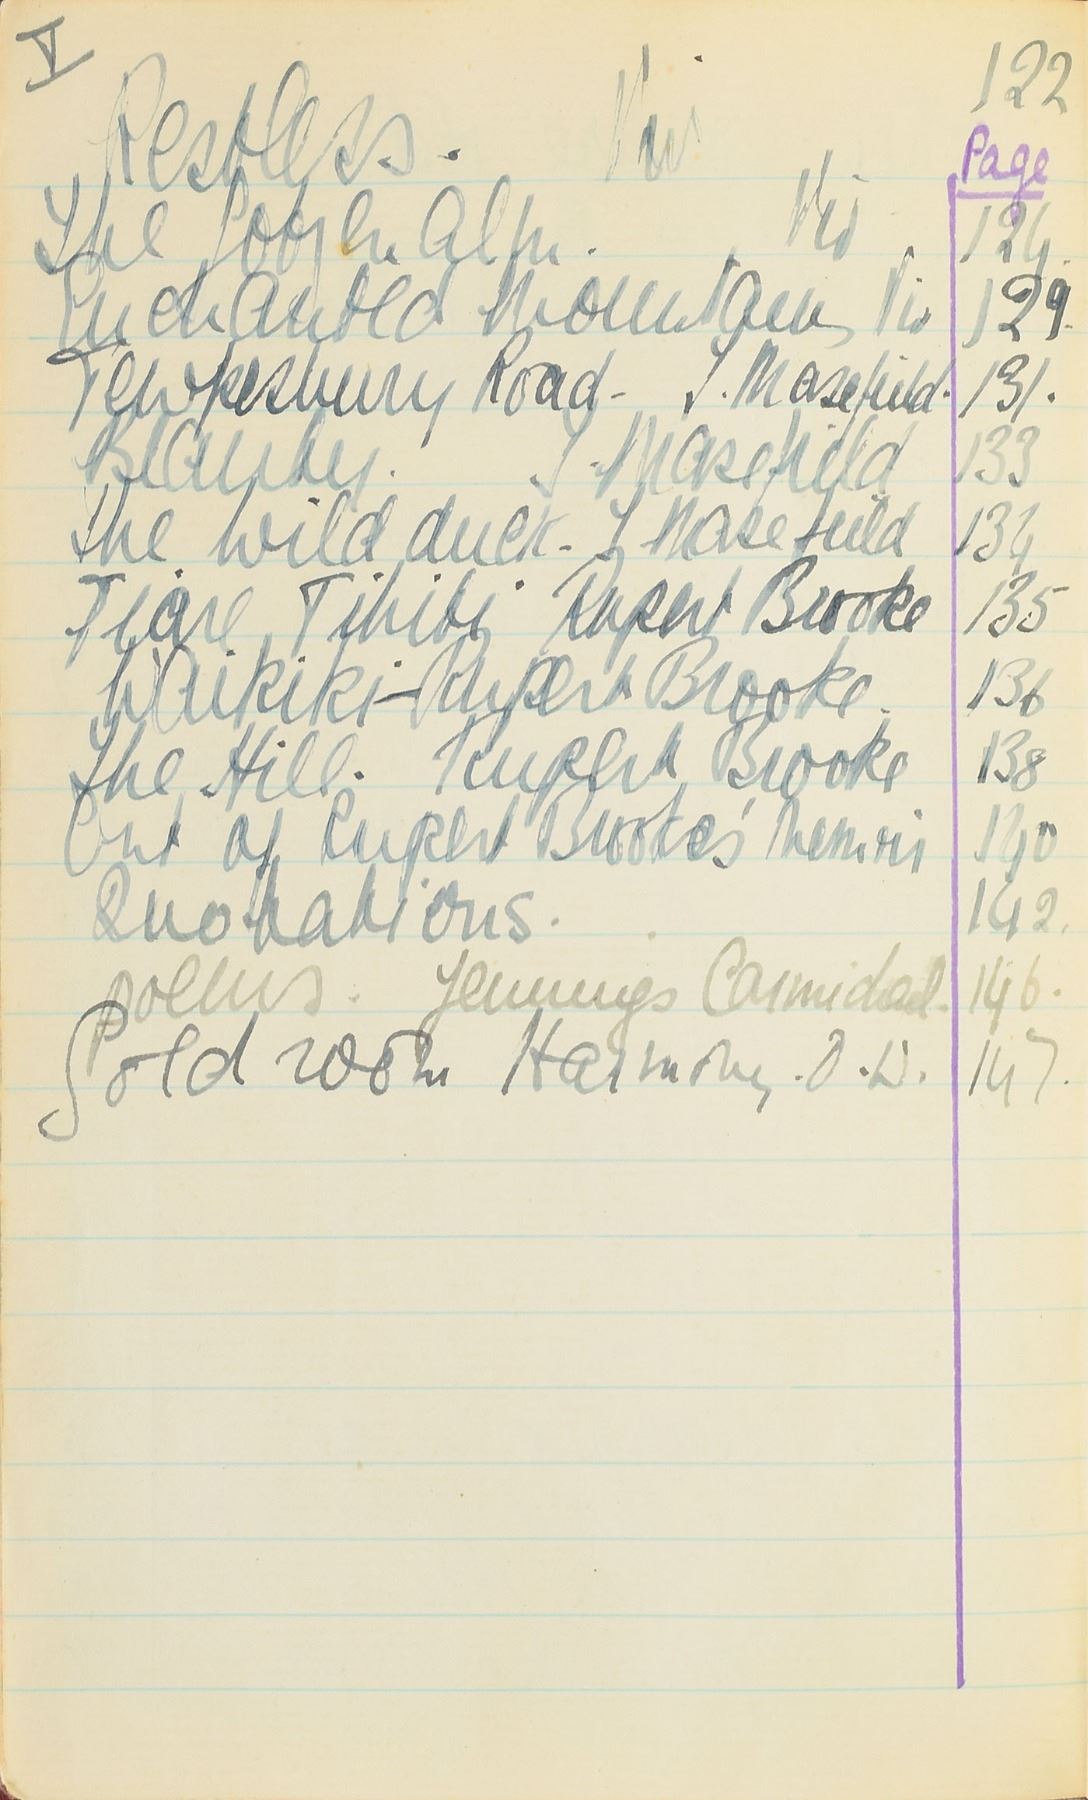 V
Restless. Viv 122
Page
The Gotzen Alm. Viv. 124.
Enchanted Mountain, Viv 129.
Tewkesbury Road - J. Masefield. 131.
Beauty. J. Masefield 133
The wild duck - J Masefield 134
Tiare Tihiti Rupert Brooke 135
Waikiki - Rupert Brooke. 136
The Hill. Rupert Brooke 138
Out of Rupert Brooke's Memoir 140
Quotations. 142.
poems. Jennings Carmichael. 146.
Gold room Harmony. O.W. 147.